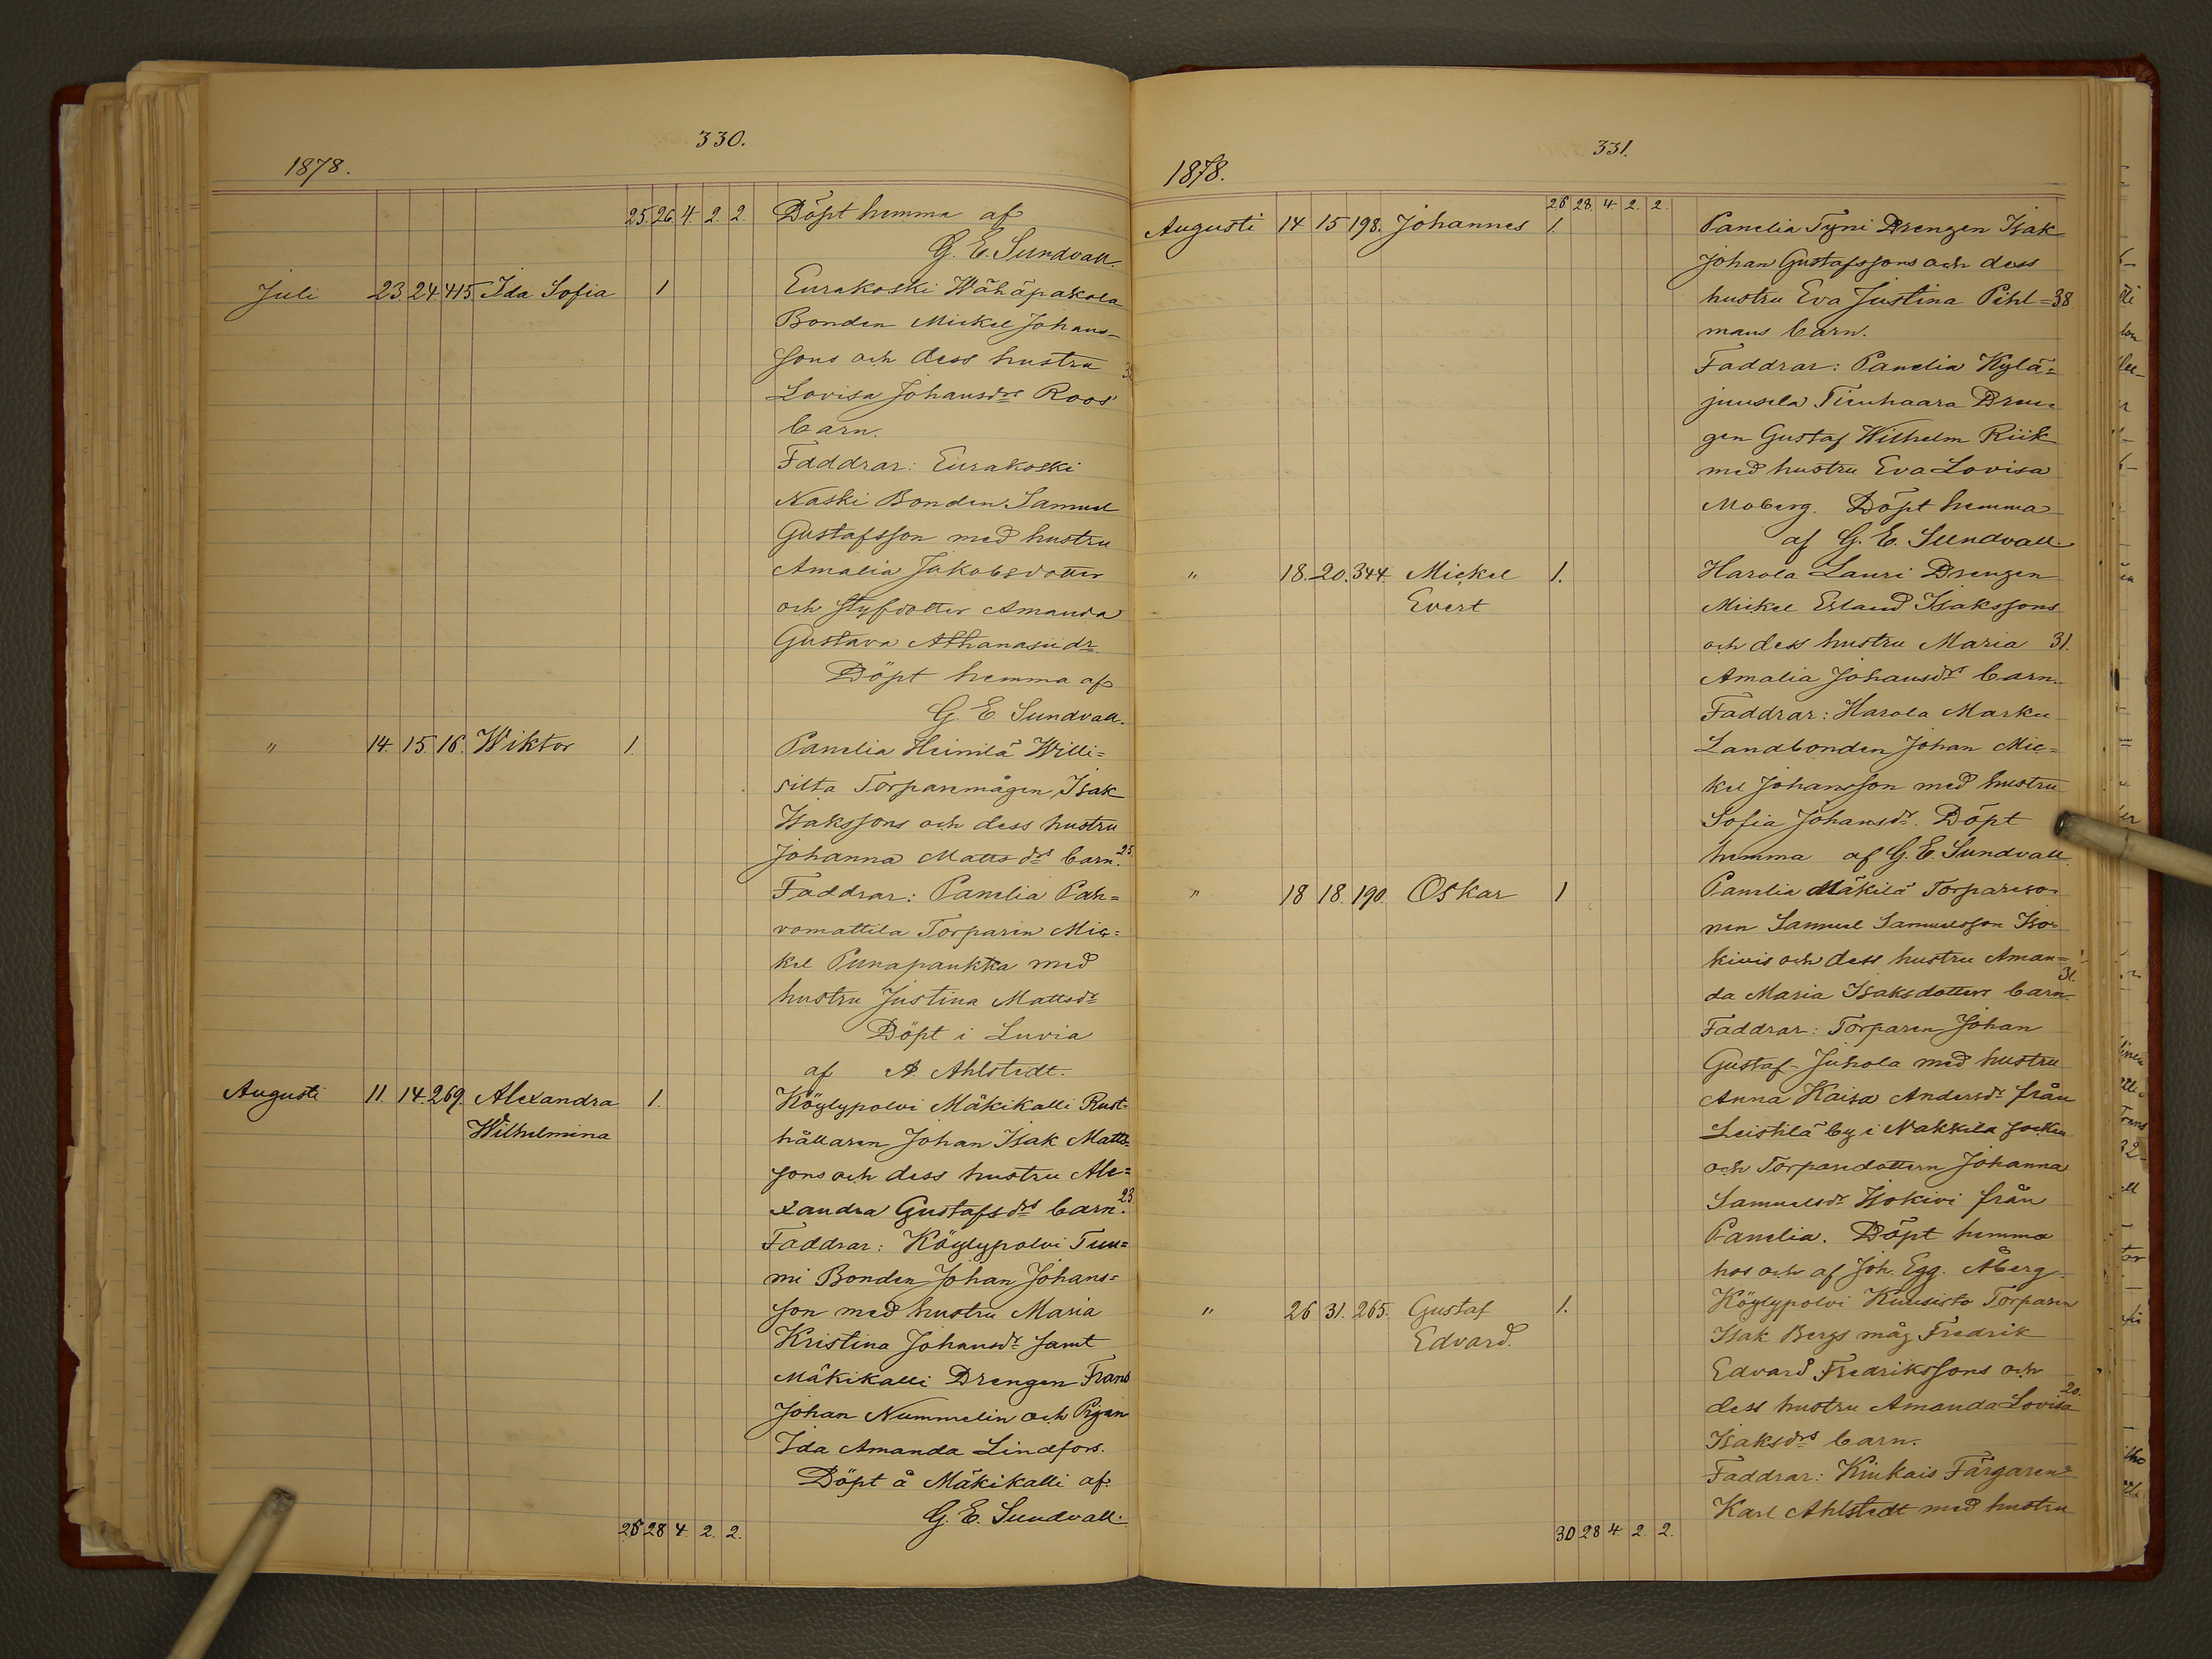 330.
1878.
25. 26. 4. 2. 2. Döpt hemma af
G. E. Sundvall.
Juli 23. 24. 415. Ida Sofia 1 Eurakoski Wähäpakola
Bonden Mickel Johans-
sons och dess hustru
Lovisa Johansdrs Roos'
barn.
Faddrar: Eurakoski
Naski Bonden Samuel
Gustafsson med hustru
Amalia Jakobsdotter
och styfdotter Amanda
Gustava Athanasiidr.
Döpt hemma af
G. E. Sundvall.
" 14. 15. 16. Wiktor 1. Panelia Heinilä Willi=
silta Torparemågen Isak
Isakssons och dess hustru
Johanna Mattsdrs barn. 25.
Faddrar: Panelia Pah=
vomattila Torparen Mic=
kel Punapaukka med
hustru Justina Mattsdr
Döpt i Luvia
af A. Ahlstedt.
Augusti 11. 14. 269. Alexandra 1. Köylypolvi Mäkikalli Rust-
Wilhelmina hållaren Johan Isak Matts-
sons och dess hustru Ale=
xandra Gustafsdrs barn. 23.
Faddrar: Köylypolvi Tuu=
mi Bonden Johan Johans=
son med hustru Maria
Kristina Johansdr. samt
Mäkikalli Drengen Frans
Johan Nummelin och Pigan
Ida Amanda Lindfors.
Döpt å Mäkikalli af
G. E. Sundvall.
26 28 4. 2. 2.
331.
1878.
26 28. 4. 2. 2.
Augusti 14 15 198. Johannes 1. Panelia Tyni Drengen Isak
Johan Gustafssons och dess
hustru Eva Justina Pihl= 38
mans barn.
Faddrar: Panelia Kylä=
juusela Tienhaara Dren=
gen Gustaf Wilhelm Riik
med hustru Eva Lovisa
Moberg. Döpt hemma
af G. E. Sundvall.
" 18. 20. 344. Mickel 1. Harola Lauri Drengen
Evert Mickel Erland Isakssons
och dess hustru Maria 31.
Amalia Johansdrs barn.
Faddrar: Harola Marku
Landbonden Johan Mic=
kel Johansson med hustru
Sofia Johansdr. Döpt
hemma af G. E. Sundvall.
" 18 18. 190. Oskar 1 Panelia Mäkilä Torpareso=
nen Samuel Samuelsson Iso-
kivis och dess hustru Aman=
da Maria Isaksdotters barn. 31.
Faddrar: Torparen Johan
Gustaf Juhola med hustru
Anna Kaisa Andersdr från
Leistilä by i Nakkila socken
och Torparedottern Johanna
Samuelsdr Isokivi från
Panelia. Döpt hemma
hos och af Joh. Egg. Åberg.
" 26 31. 265. Gustaf 1. Köylypolvi Kuusisto Torparen
Edvard. Isak Bergs måg Fredrik
Edvard Fredrikssons och
dess hustru Amanda Lovisa 20.
Isaksdrs barn.
Faddrar: Kiukais Färgaren
Karl Ahlstedt med hustru
30 28 4. 2. 2.